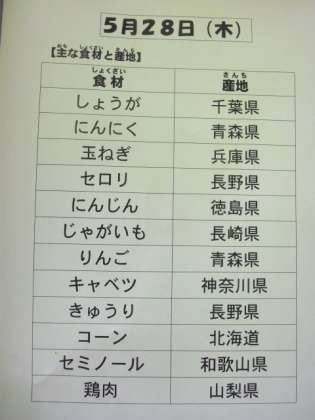 5月28日（木）
【主な食材と産地】
食材 産地
しょうが 千葉県
にんにく 青森県
玉ねぎ 兵庫県
セロリ 長野県
にんじん 徳島県
じゃがいも 長崎県
りんご 青森県
キャベツ 神奈川県
きゅうり 長野県
コーン 北海道
セミノール 和歌山県
鶏肉 山梨県